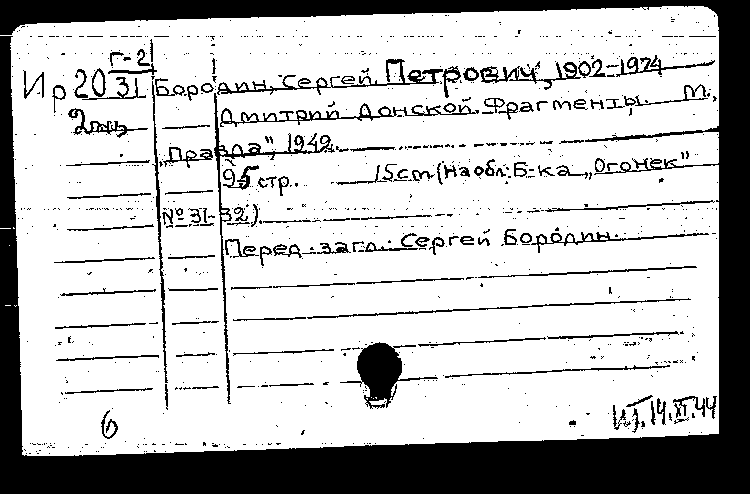 Г-2
Ир 20 31 Бородин, Сергей Петрович, 1902-1974
Дмитрий Донской. Фрагменты. М.,
2
„Правда", 1942.
95 стр. 15cm (На обл: Б-ка „Огонек"
№ 31-32).
Перед загл.: Сергей Бородин.
6
14.XI.44